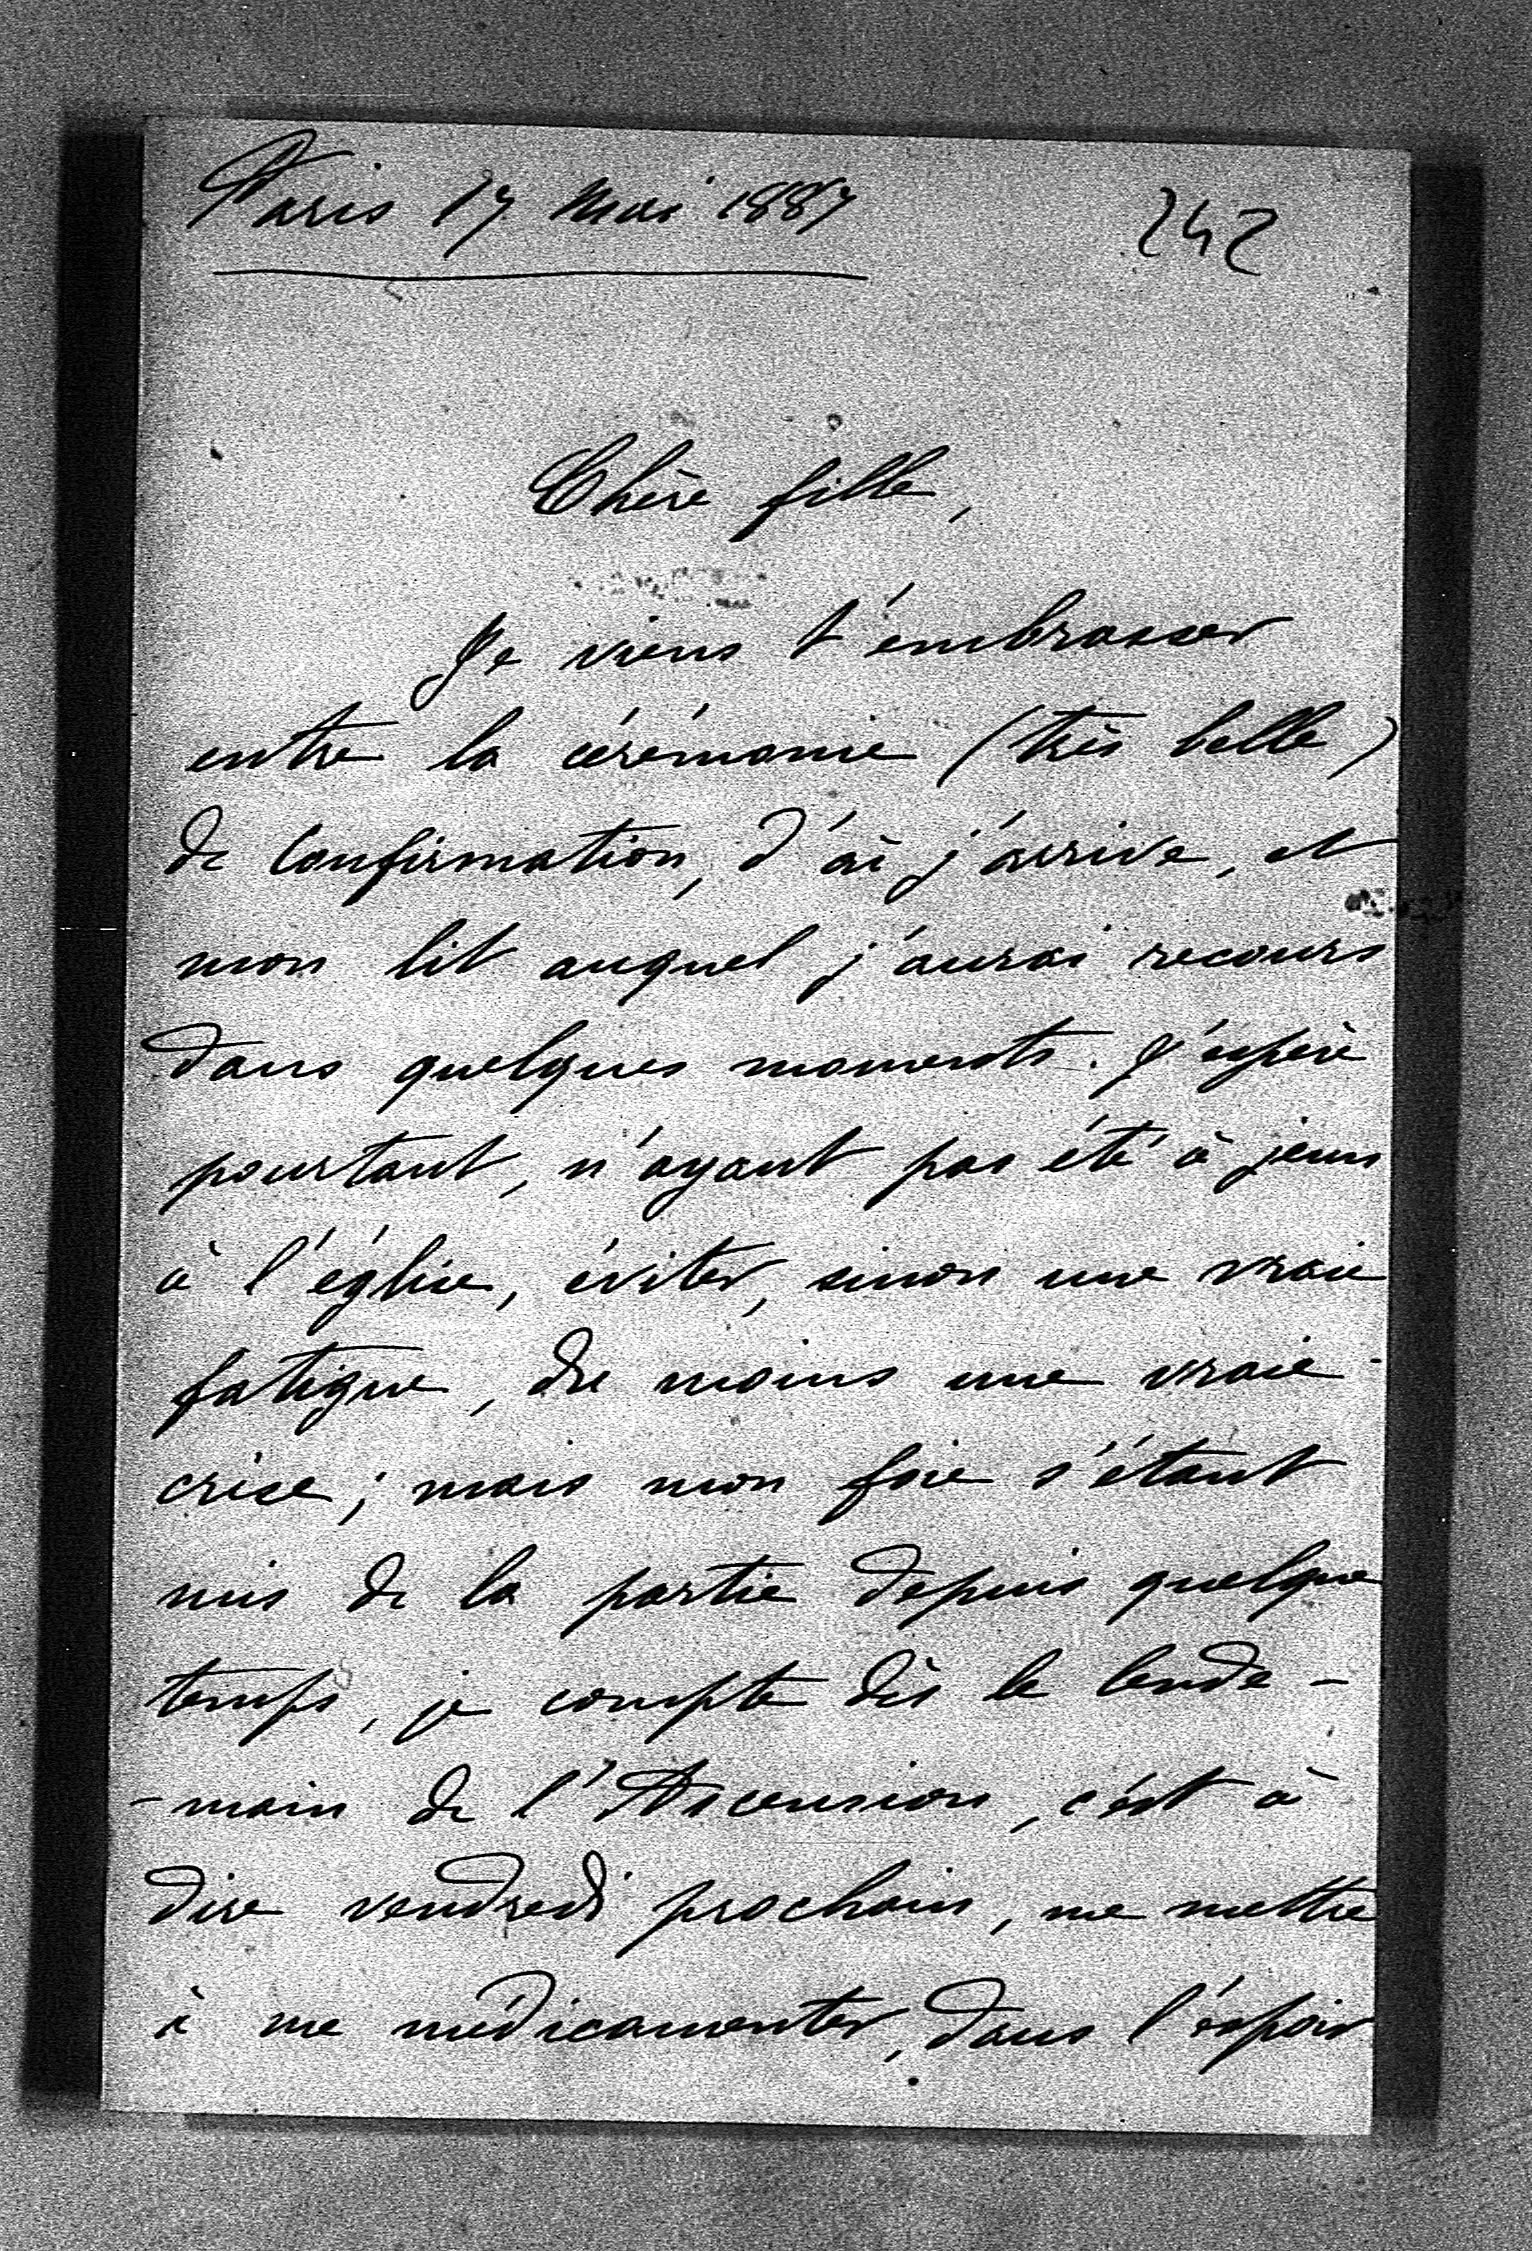 Paris 17 Mai 1887
242
Chère fille,
Je viens t'embrasser
entre la cérémonie (très belle)
de Confirmation, d'où j'arrive, et
mon lit auquel j'aurai recours
dans quelques moments. J'espère
pourtant, n'ayant pas été à jeun
à l'église, éviter, sinon une vraie
fatigue, du moins une vraie
crise; mais mon foie s'étant
mis de la partie depuis quelque
temps, je compte dès le lende-
-main de l'Ascension, c'est à
dire vendredi prochain, me mettre
à me médicamenter, dans l'espoir